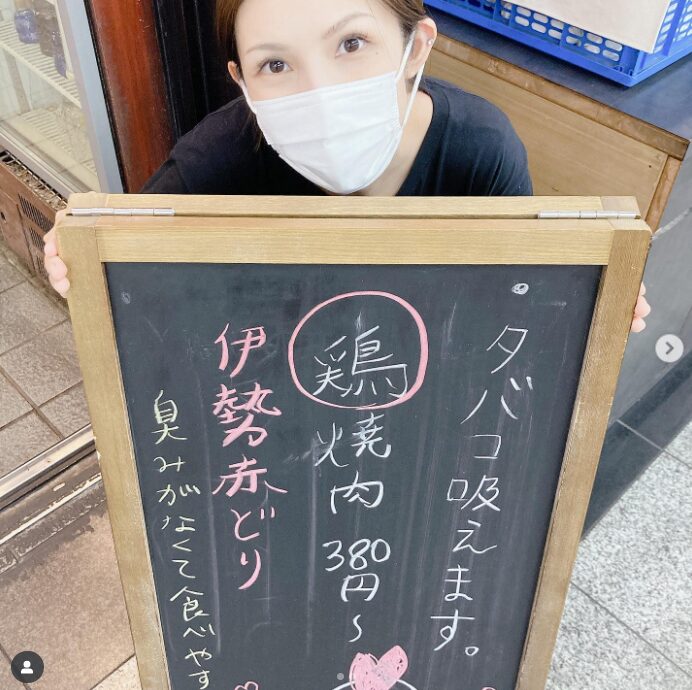 タバコ吸えます。
鶏焼肉 380円〜
伊勢赤どり
臭みがなくて食べやす